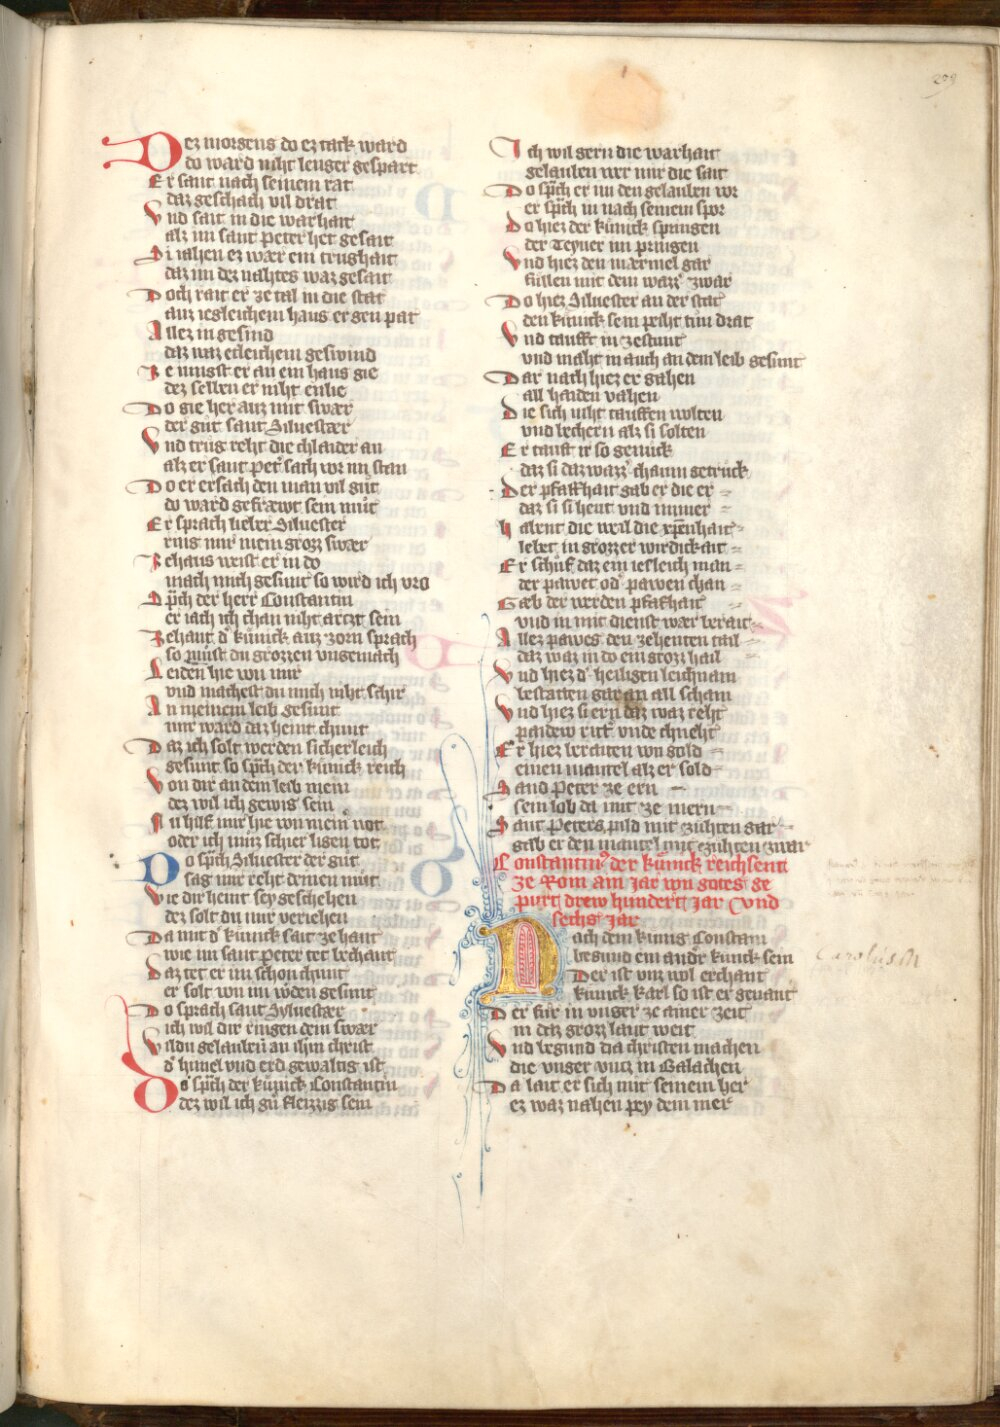 259
Dez morgens do ez tack ward
do ward niht lenger gespart
Er sant nach seinem rat
daz geschach vil drat
Vnd sait in die warhait
alz im sant Peter het gesait
Si iahen ez wær ein trughait
daz im dez nahtes waz gesait
Doch rait er ze tal in die stat
auz iegleichem haus er gen pat
Allez in gesind
daz waz ecleichem geswind
Ze iungst er an ein haus gie
dez selben er niht enlie
Do gie her auz mit swær
der gůt sant Siluester
Vnd trůg reht die chlaider an
alz er sant Pet' sach vor im stan
Do er ersach den man vil gůt
do ward gefræwt sein můt
Er sprach lieber Siluester
ring mir mein grozz swær
Zehaus weist er in do
mach mich gesunt so wird ich vro
Sp̄ch der herr Constantin
er iach ich chan niht arczt sein
Zehant d' kůnick auz zorn sprach
so můst du grozzen vngemach
Leiden hie von mir
vnd machest du mich niht schir
An meinem leib gesunt
mir ward daz heint chunt
Daz ich solt werden sicherleich
gesunt so sp̄ch der kůnick reich
Von dir an dem leib mein
dez wil ich gewis sein
Nu hilf mir hie von mein' not
oder ich můz schier ligen tot
Do sp̄ch Siluester der gůt
sag mir reht deinen můt
Wie dir heint sey geschehen
dez solt du mir veriehen
Da mit d' kůnick sait ze hant
wie im sant Peter tet bechant
Daz tet er im schon chunt
er solt von im w'den gesunt
Do sprach sant Sylvester
ich wil dir ringen dein swær
Wildu gelauben an ihm christ
d' himel vnd erd gewaltig ist
Do sp̄ch der kůnick Constantin
dez wil ich gů fleizzig sein
Ich wil gern die warhait
gelauben wer mir die sait
Do sp̄ch er im den gelauben vor
er sp̄ch in nach seinem spor
Do hiez der kůnick springen
der Teyner im pringen
Vnd hiez den mærmel gar
füllen mit dem wazz' zwar
Do hiez Siluester an der stat
den kůnick sein peiht tůn drat
Vnd tauft in zestunt
vnd maht in auch an dem leib gesunt
Dar nach hiez er gahen
all haiden vahen
Die sich niht tauffen wolten
vnd becheren alz si solten
Er tauft ir so genuck
daz si daz wazz' chaum getruck
Der pfaffhait gab er die er
daz si si heut vnd immer
Habent die weil die xp̄enhait
lebet in grozzer wirdickait
Er schůf daz ein iesleich man
der pawet od' pawen chan
Gæb der werden pfafhait
vnd in mit dienst wær berait
Allez pawes den zehenten tail
daz waz in do ein grozz hail
Vnd hiez d' heiligen leichnam
bestatten gar an all scham
Vnd hiez si ern daz waz reht
paidew ritt' vnde chneht
Er hiez beraiten von gold
einen mantel alz er sold
Sand Peter ze ern
sein lob da mit ze mern
Sant Peters pild mit züchten gar
gab er den mantel mit züchten zwar
Constantin' der kůnick reichsent
ze Rom am Jar von gotes ge
purt drew hundert Jar Vnd
sechs Jar
Nach dem kunig Constam
begund ein andr kunck sein
Der ist vnz wol erchant
kunick Karl so ist er genant
Der fůr in vnger ze ainer zeit
in daz grozz lant weit
Carolus M
Vnd begund dia christen machen
die vnger vncz in Galachen
Da lait er sich mit seinem her
ez waz nahen pey dem mer